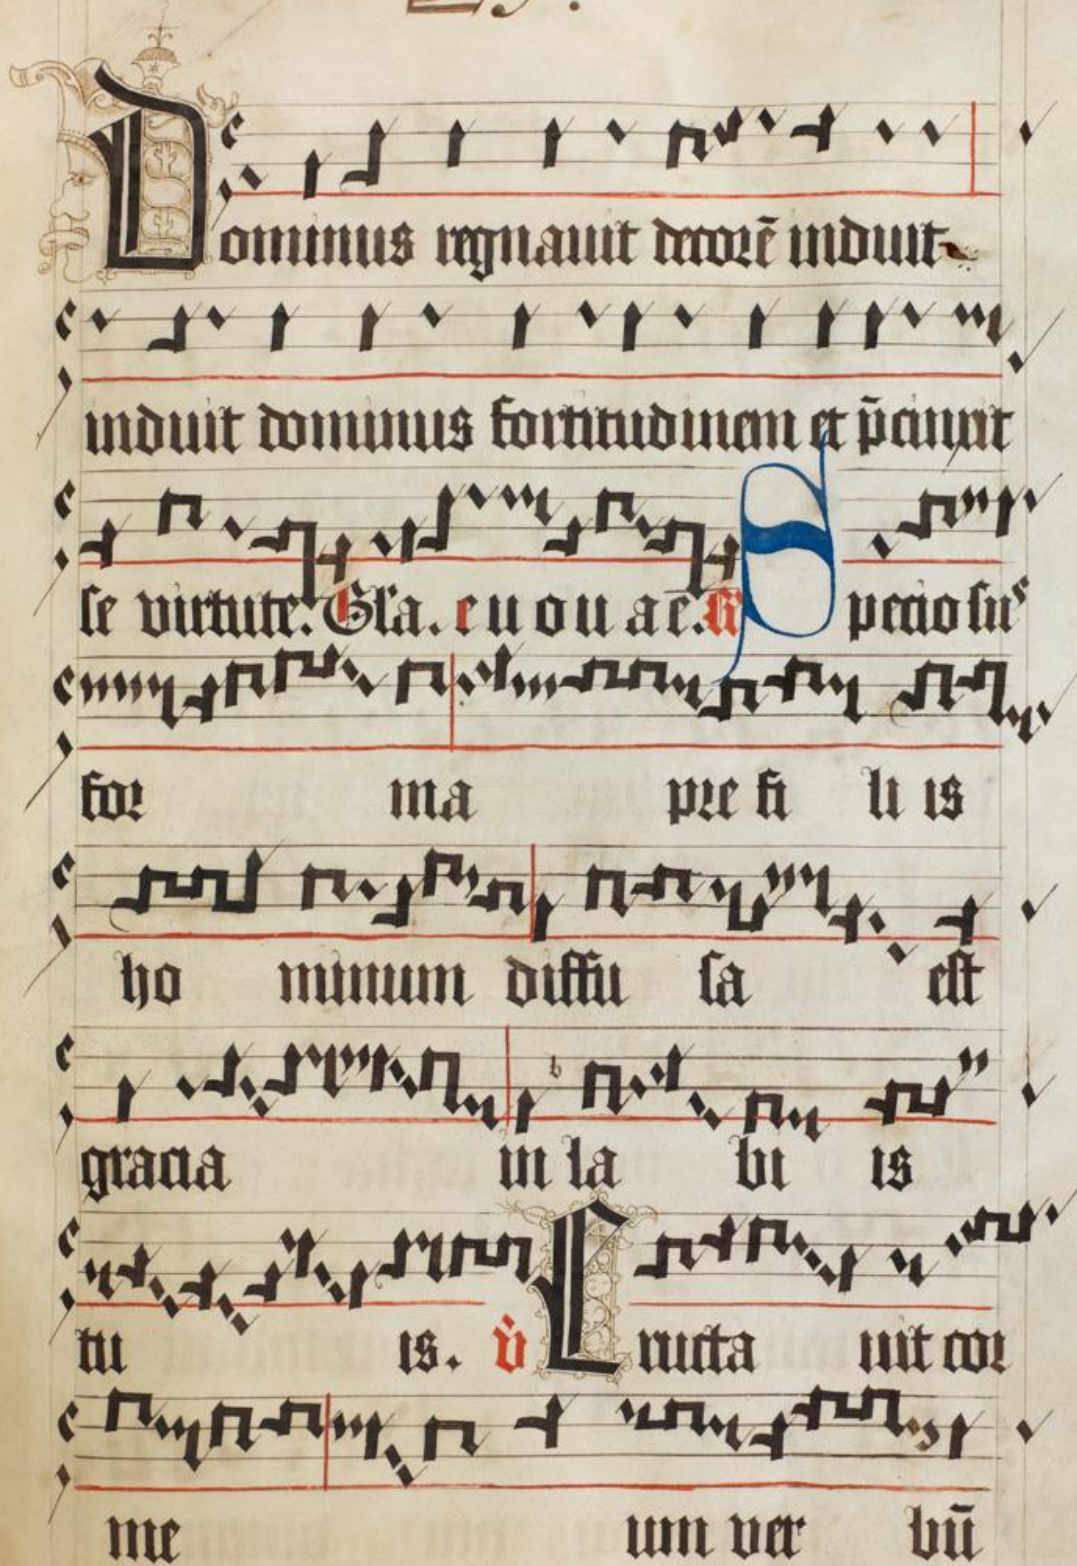 Dominus regnauit decorē induit
induit dominus fortitudinem et p̄cinxit
se virtute. Gl'a. e u o u a e. Gr̄ Speciosus
for ma pre fi li is
ho minum diffu sa est
gracia in la bi is
tu is. v̄ Eructa uit cor
me um ver bū